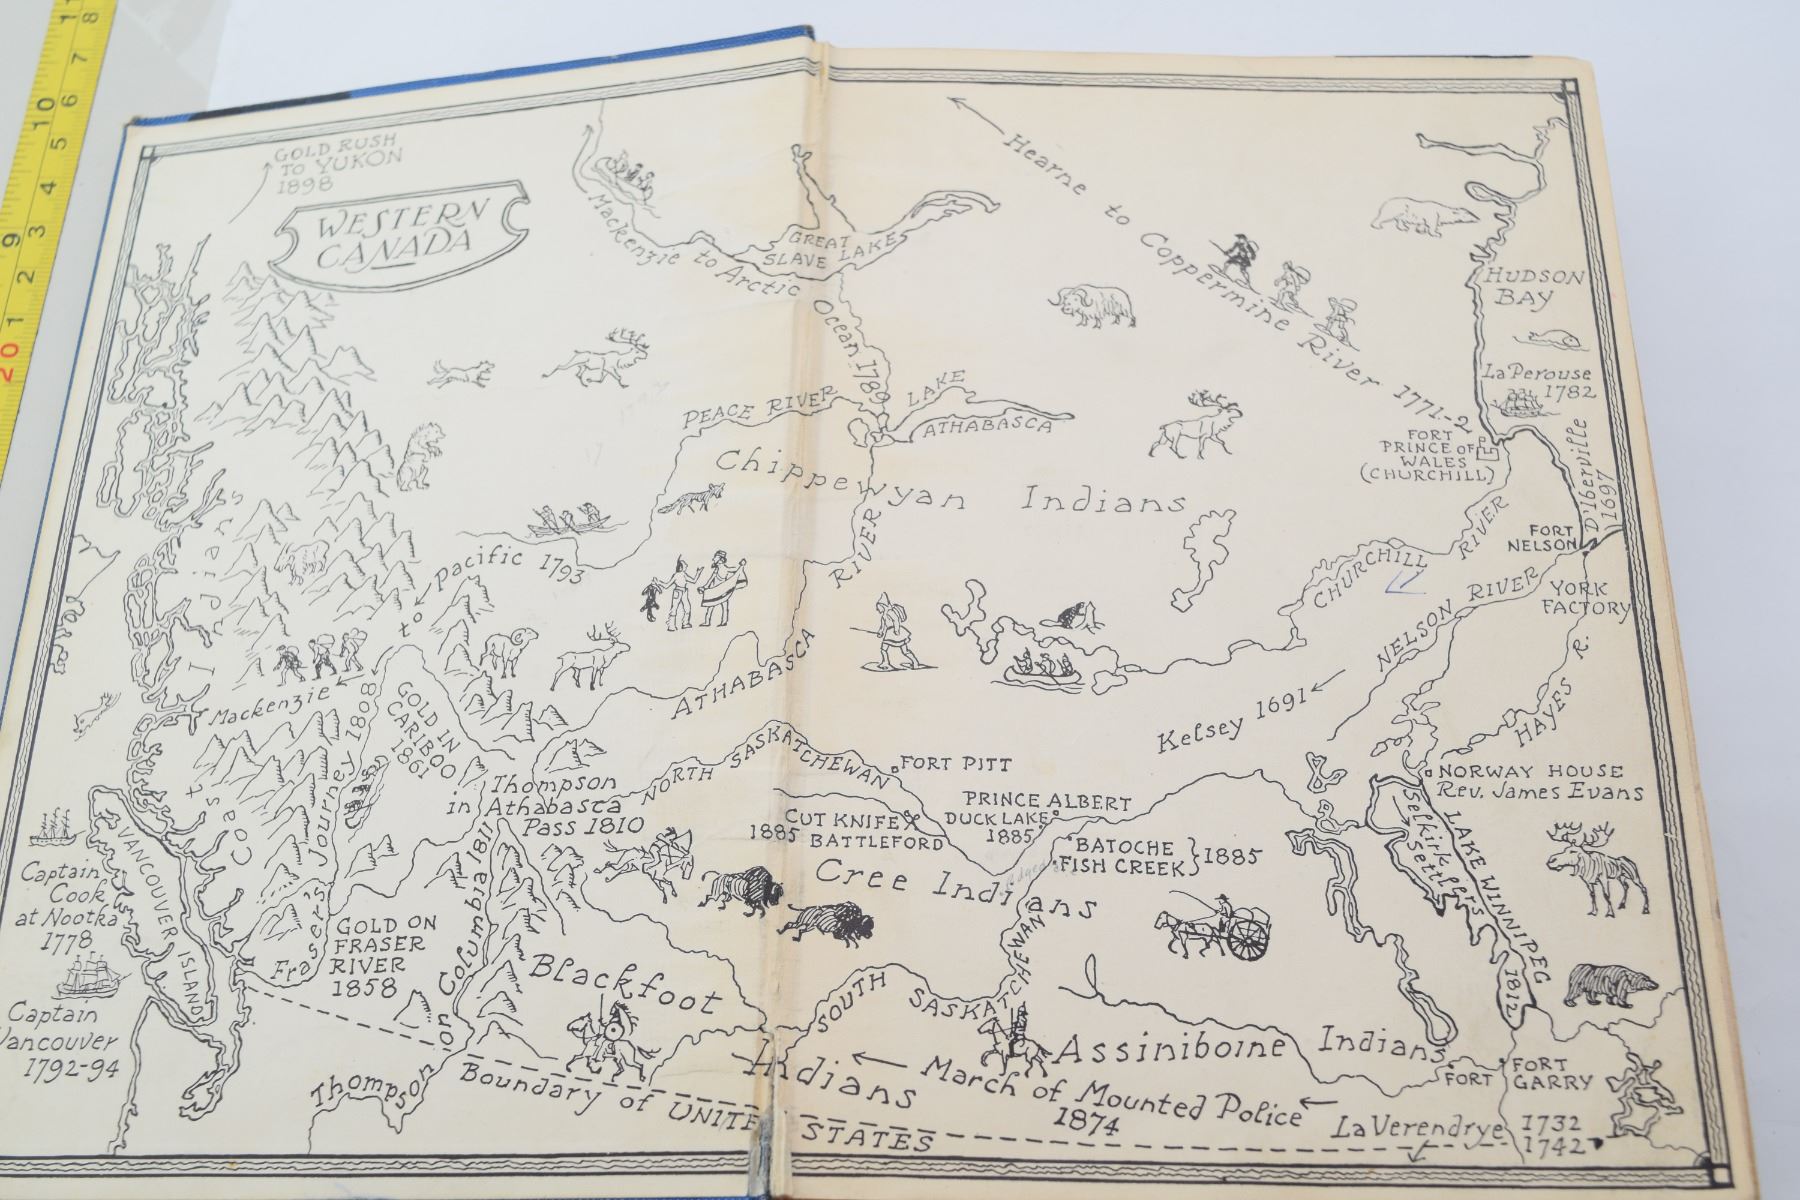 GOLD RUSH
TO YUKON
1898
WESTERN
CANADA
Mackenzie to Arctic Ocean 1789
GREAT
SLAVE LAKE
Hearne to Coppermine River 1771-2
HUDSON
BAY
La Perouse
1782
FORT
PRINCE OF
WALES
(CHURCHILL)
D'Iberville
1697
FORT
NELSON
YORK
FACTORY
PEACE RIVER
LAKE
ATHABASCA
Chippewyan Indians
Mackenzie to Pacific 1793
ATHABASCA RIVER
CHURCHILL RIVER
NELSON RIVER
HAYES R.
Kelsey 1691
Coast Indians
Fraser's Journey 1808
GOLD IN
CARIBOO
1861
Thompson
in Athabasca
Pass 1810
NORTH SASKATCHEWAN
FORT PITT
PRINCE ALBERT
DUCK LAKE
1885
CUT KNIFE
1885 BATTLEFORD
BATOCHE
FISH CREEK } 1885
NORWAY HOUSE
Rev. James Evans
Selkirk
Settlers
LAKE WINNIPEG
1812
Captain
Cook
at Nootka
1778
VANCOUVER ISLAND
Captain
Vancouver
1792-94
GOLD ON
FRASER
RIVER
1858
Thompson on Columbia 1811
Cree Indians
Blackfoot
Indians
SOUTH SASKATCHEWAN
Assiniboine Indians
March of Mounted Police
1874
FORT
FORT
GARRY
La Verendrye 1732
1742
Boundary of UNITE STATES
11
10
9
20
8
7
6
5
4
3
2
1